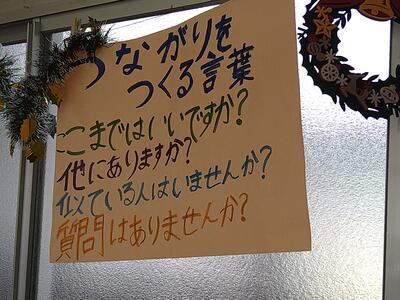 つながりを
つくる言葉
ここまではいいですか?
他にありますか?
似ている人はいませんか?
質問はありませんか?